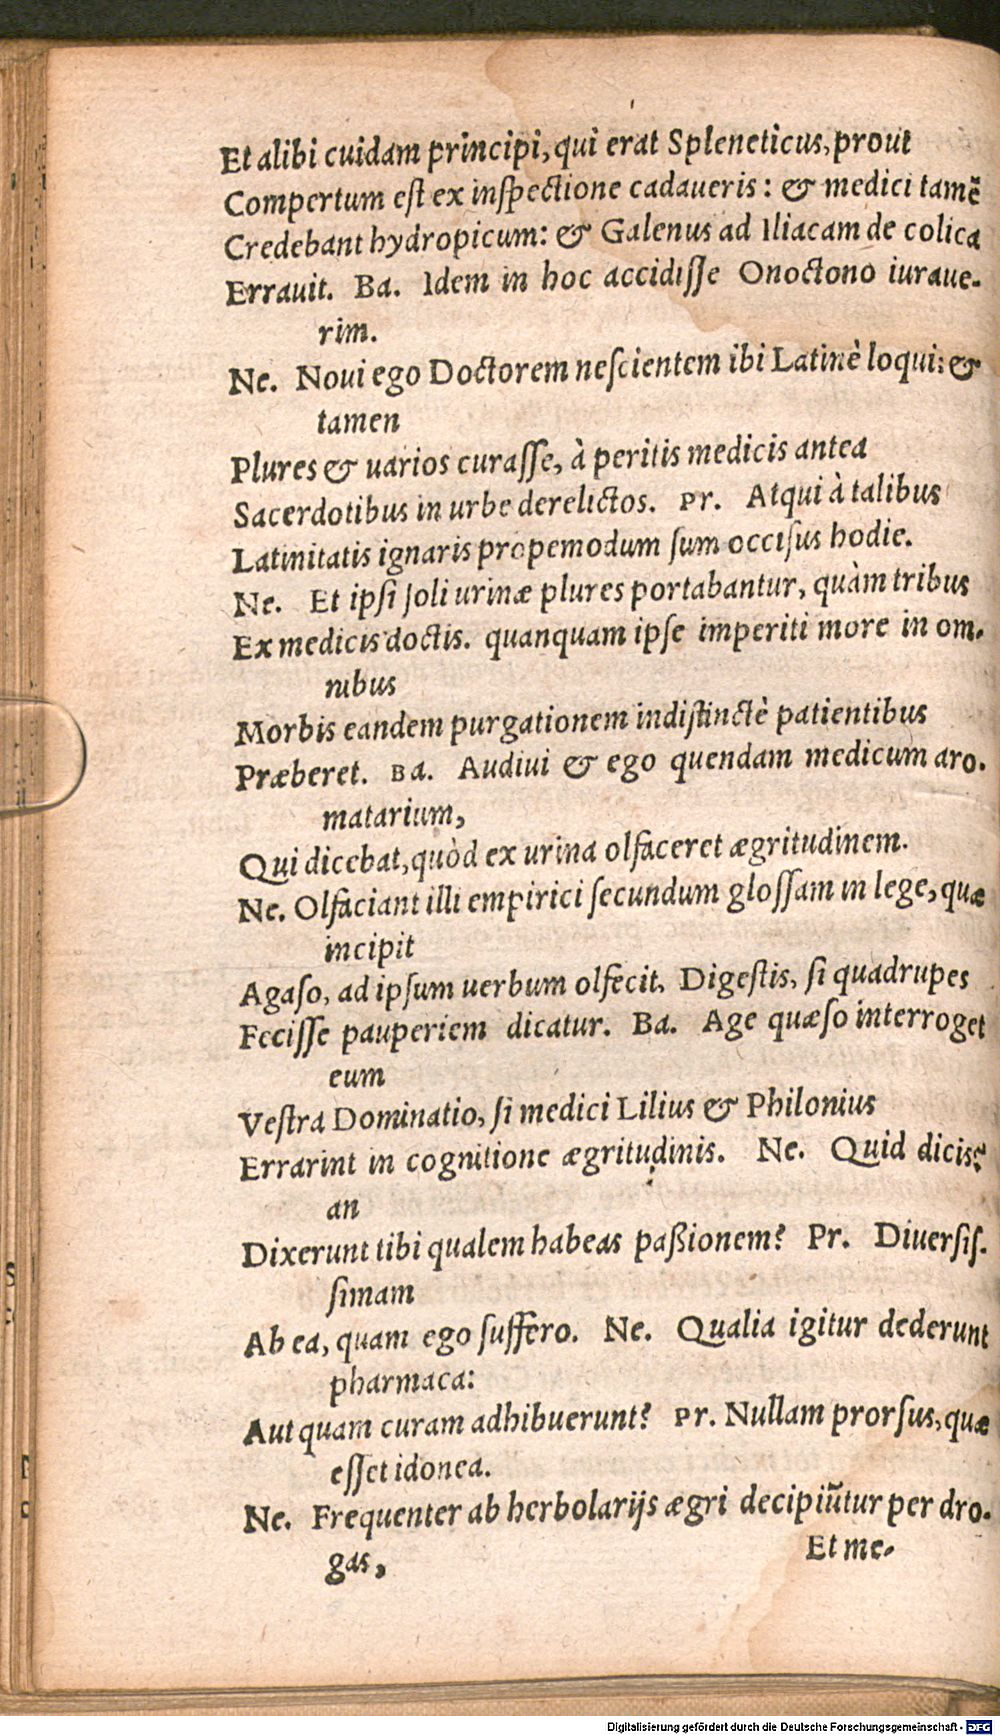 Et alibi cuidam principi, qui erat Spleneticus, prout
Compertum eſt ex inſpectione cadaueris: & medici tamẽ
Credebant hydropicum: & Galenus ad Iliacam de colica
Errauit. Ba. Idem in hoc accidiſſe Onoctono iuraue-
rim.
Ne. Noui ego Doctorem neſcientem ibi Latinè loqui: &
tamen
Plures & uarios curaſſe, à peritis medicis antea
Sacerdotibus in urbe derelictos. Pr. Atqui à talibus
Latinitatis ignaris propemodum ſum occiſus hodie.
Ne. Et ipſi ſoli urinæ plures portabantur, quàm tribus
Ex medicis doctis. quanquam ipſe imperiti more in om-
nibus
Morbis eandem purgationem indiſtinctè patientibus
Præberet. Ba. Audiui & ego quendam medicum aro-
matarium,
Qui dicebat, quòd ex urina olfaceret ægritudinem.
Ne. Olfaciant illi empirici ſecundum gloſſam in lege, quæ
incipit
Agaſo, ad ipſum uerbum olfecit, Digeſtis, ſi quadrupes
Feciſſe pauperiem dicatur. Ba. Age quæſo interroget
eum
Veſtra Dominatio, ſi medici Lilius & Philonius
Errarint in cognitione ægritudinis. Ne. Quid dicis?
an
Dixerunt tibi qualem habeas paßionem? Pr. Diuerſiſ-
ſimam
Ab ea, quam ego ſuffero. Ne. Qualia igitur dederunt
pharmaca:
Aut quam curam adhibuerunt? Pr. Nullam prorſus, quæ
eſſet idonea.
Ne. Frequenter ab herbolarijs ægri decipiũtur per dro-
gas,
Et me-
Digitalisierung gefördert durch die Deutsche Forschungsgemeinschaft - DFG